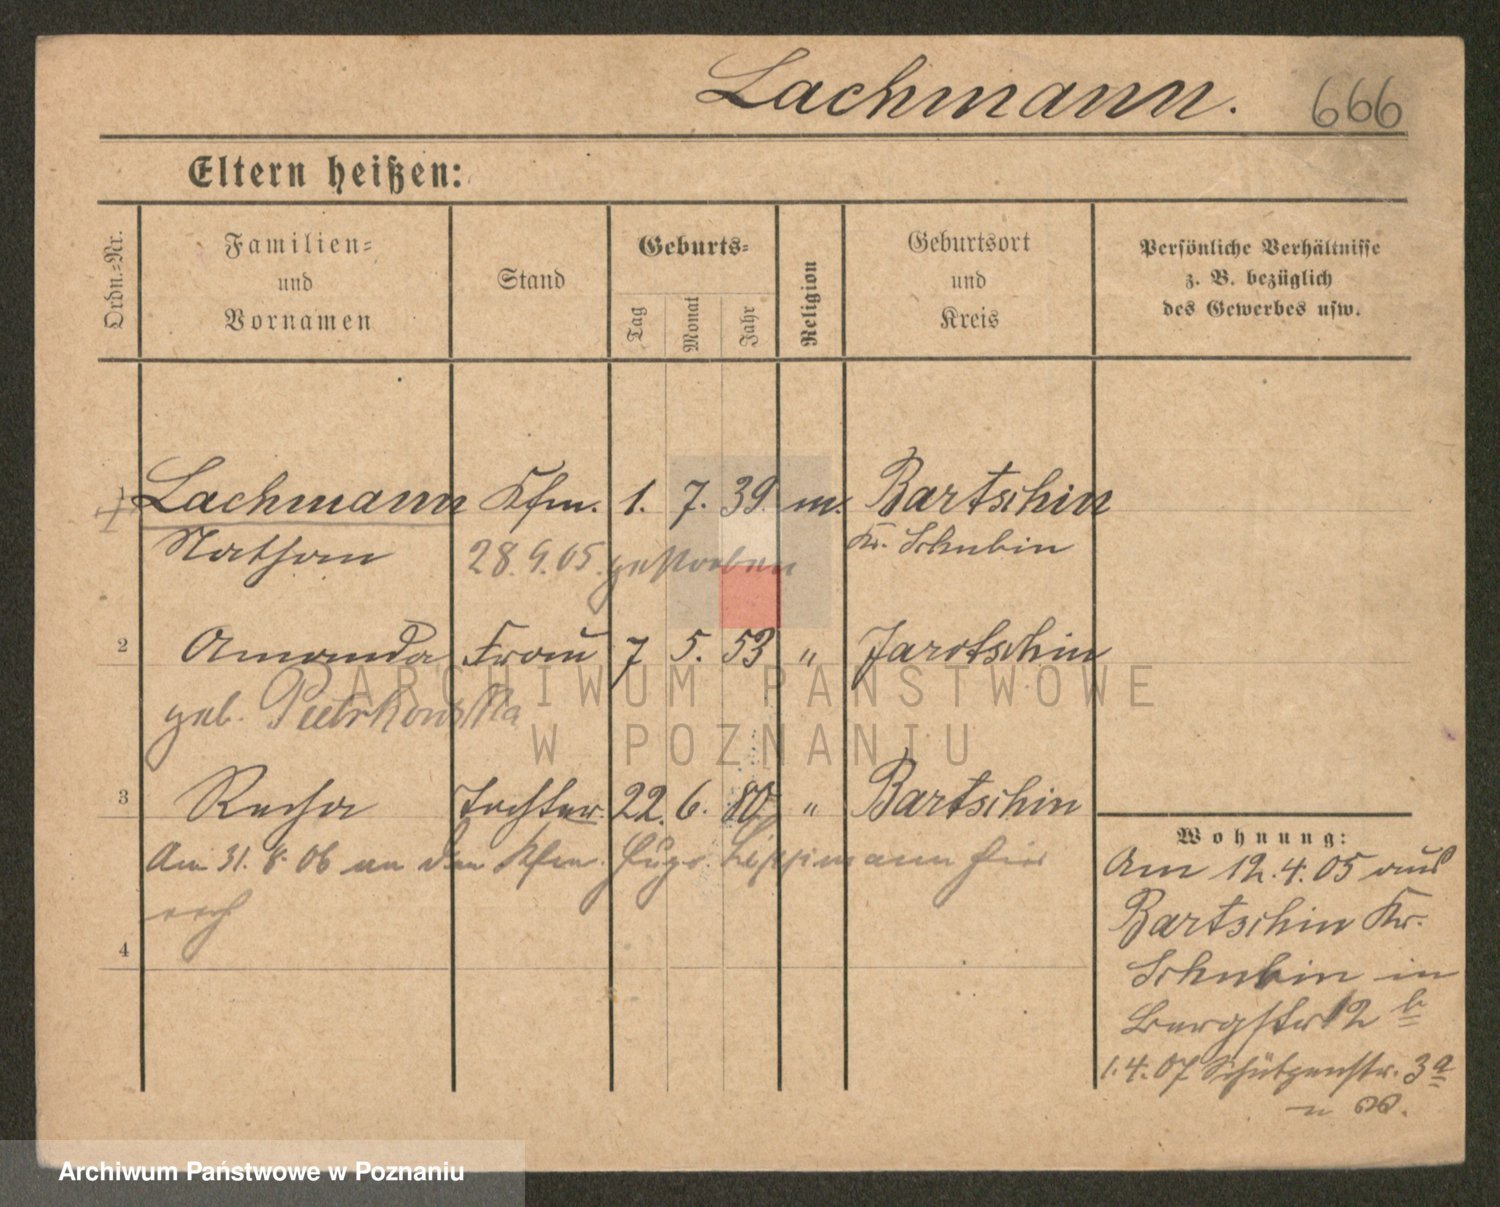 Lachmann. 666
Eltern heißen:
Ordn.-Nr.
Familien-
und
Vornamen
Stand
Geburts-
Tag
Monat
Jahr
Religion
Geburtsort
und
Kreis
Persönliche Verhältnisse
z. B. bezüglich
des Gewerbes usw.
1 Lachmann Kfm. 1. 7. 39. m. Bartschin
Nathan 28.9.05. gestorben Kr. Schubin
2 Amanda Frau 7 5. 53 " Jarotschin
geb.
3 Recha Tochter. 22. 6. 80 " Bartschin
Am 31. 8. 06 an den Kfm. Hugo Lippmann hier
verh
4
Wohnung:
Am 12.4.05 aus
Bartschin Kr.
Schubin in
Bergstr 12 b
1.4.07 Schützenstr. 3a
ARCHIWUM PAŃSTWOWE
W POZNANIU
Archiwum Państwowe w Poznaniu